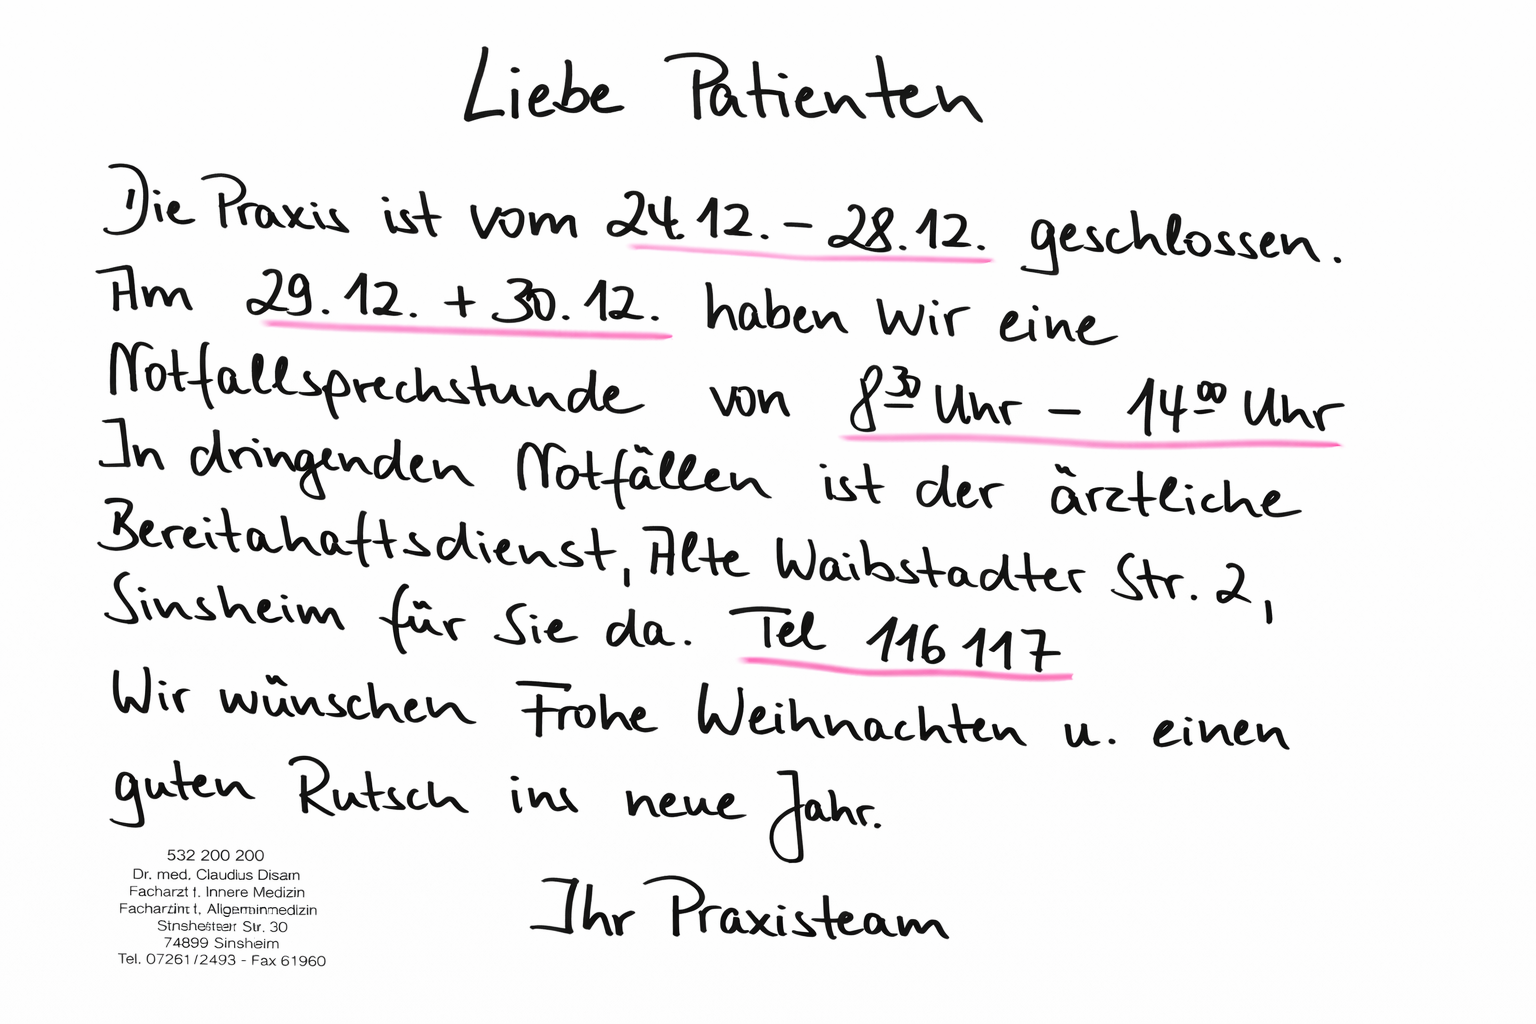 Liebe Patienten
Die Praxis ist vom 24.12. – 28.12. geschlossen.
Am 29.12. + 30.12. haben wir eine
Notfallsprechstunde von 8³⁰ Uhr – 14⁰⁰ Uhr
In dringenden Notfällen ist der ärztliche
Bereitahaftsdienst, Alte Waibstadter Str. 2,
Sinsheim für Sie da. Tel 116 117
Wir wünschen Frohe Weihnachten u. einen
guten Rutsch ins neue Jahr.
Ihr Praxisteam
532 200 200
Dr. med. Claudius Disam
Facharzt f. Innere Medizin
t, Allgeminmedizin
Str. 30
74899 Sinsheim
Tel. 07261/2493 - Fax 61960